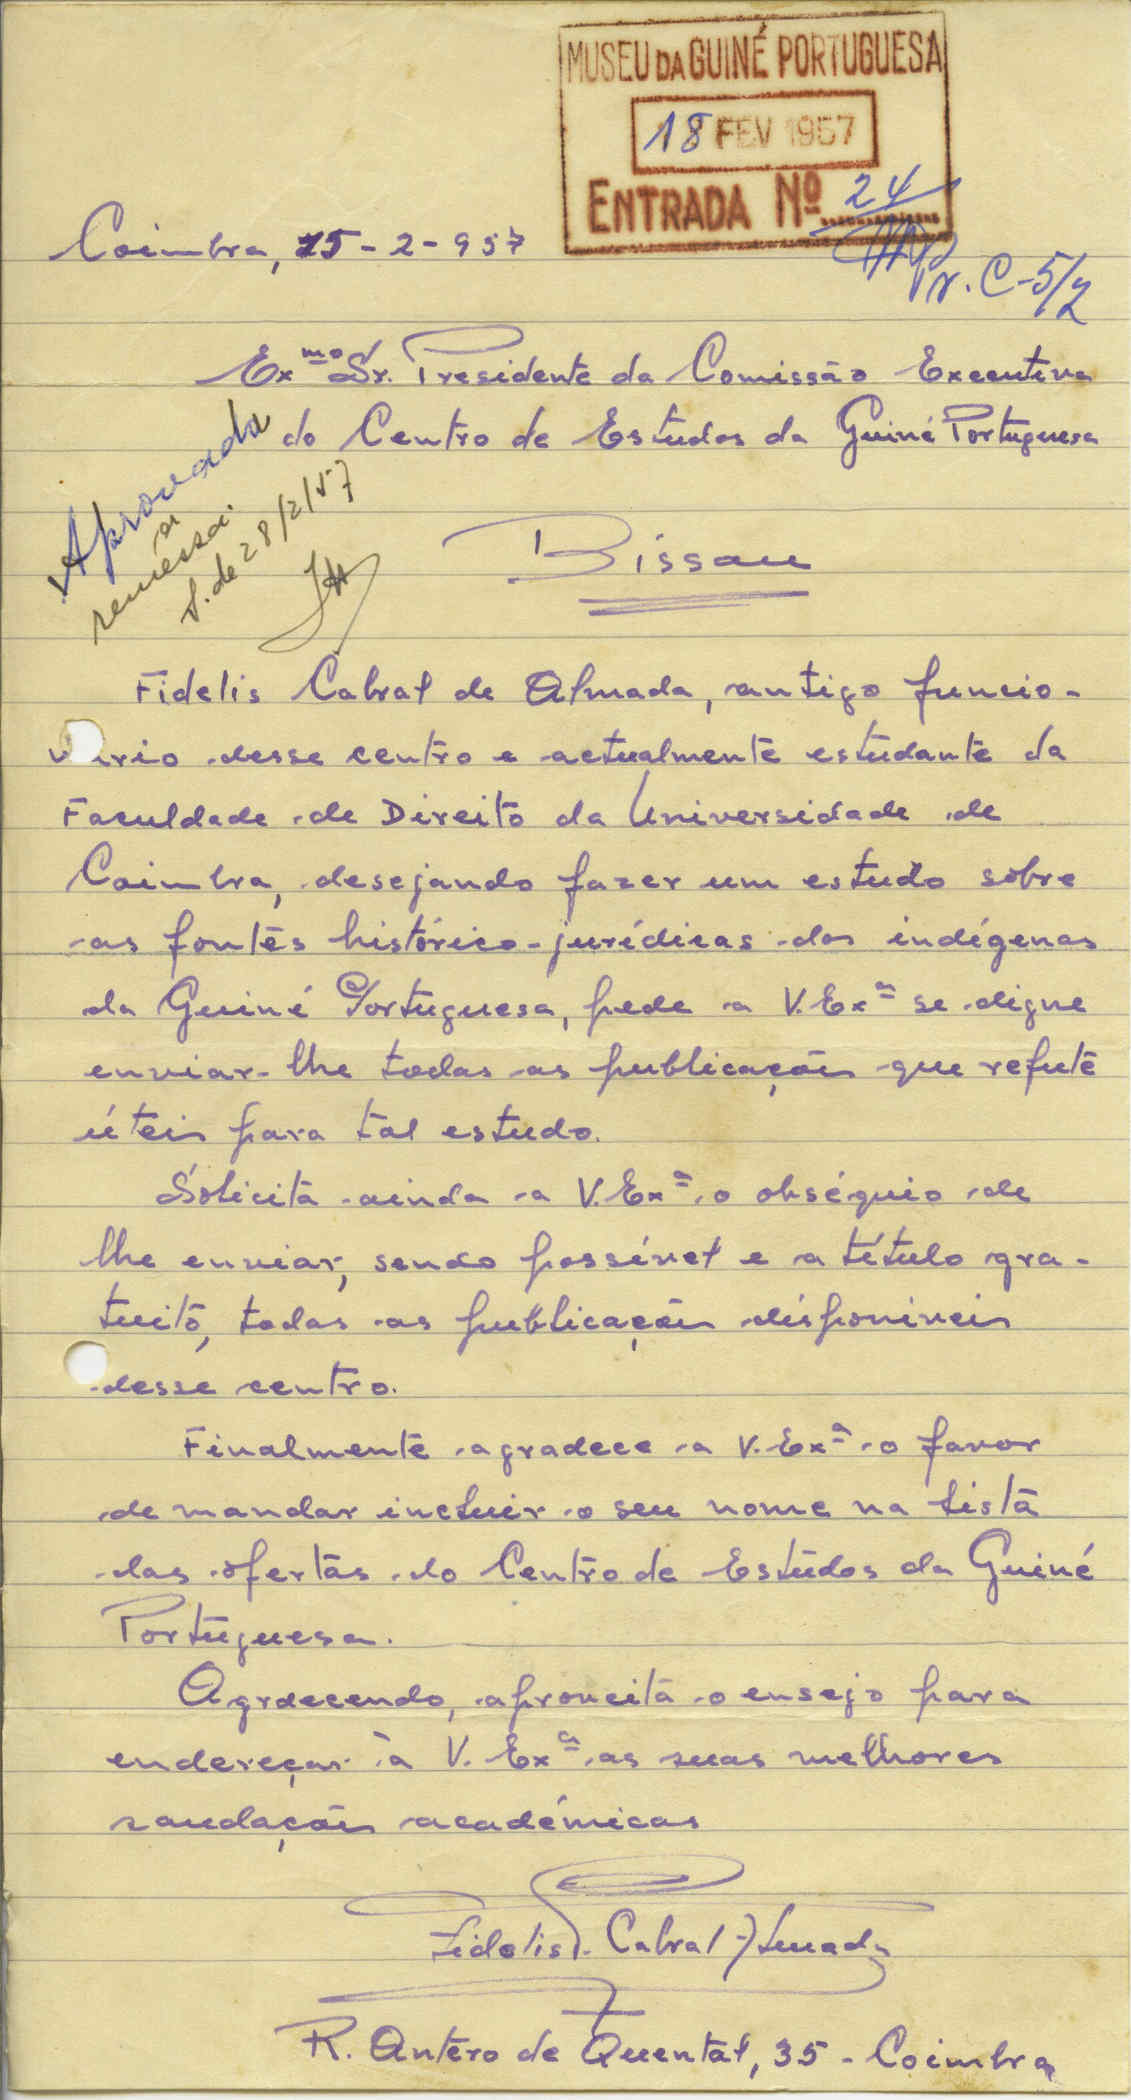 MUSEU DA GUINÉ PORTUGUESA
18 FEV 1957
ENTRADA Nº 24
Pr. C-5/2
Coimbra, 15-2-957
Exmo Sr. Presidente da Comissão Executiva
do Centro de Estudos da Guiné Portuguesa
Aprovada
a
remessa.
S. de 28/2/57
Bissau
Fidelis Cabral de Almada, antigo funcio-
nário desse centro e actualmente estudante da
Faculdade de Direito da Universidade de
Coimbra, desejando fazer um estudo sôbre
as fontes histórico-jurídicas dos indígenas
da Guiné Portuguesa, pede a V. Exª se digne
enviar-lhe todas as publicações que repute
úteis para tal estudo.
Solicita ainda a V. Exª o obséquio de
lhe enviar, sendo possível e a título gra-
tuito, todas as publicações disponíveis
desse centro.
Finalmente agradece a V. Exª o favor
de mandar incluir o seu nome na lista
das ofertas do Centro de Estudos da Guiné
Portuguesa.
Agradecendo, aproveita o ensejo para
endereçar à V. Exª as suas melhores
saudações académicas
Fidelis Cabral Almada
R. Antero de Quental, 35 - Coimbra